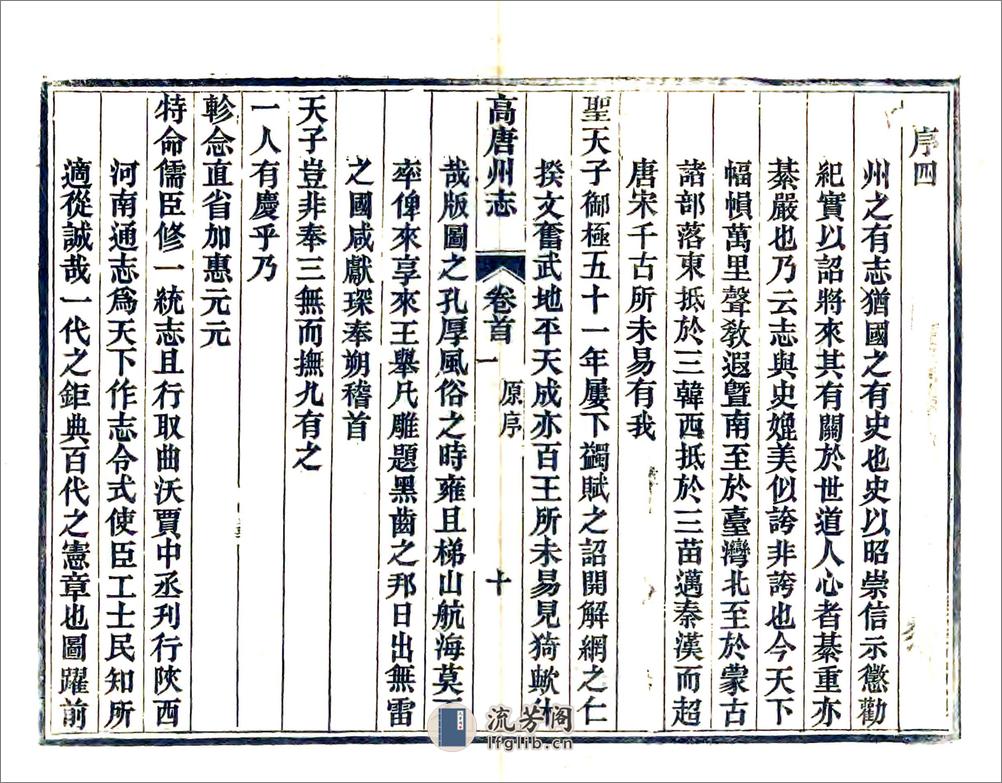 序四
州之有志猶國之有史也史以昭崇信示懲勸
紀實以詔將來其有關於世道人心者綦重亦
綦嚴也乃云志與史媲美似誇非誇也今天下
幅幀萬里聲敎遐曁南至於臺灣北至於蒙古
諸部落東抵於三韓西抵於三苗邁秦漢而超
唐宋千古所未易有我
聖天子御極五十一年屢下蠲賦之詔開解網之仁
揆文奮武地平天成亦百王所未易見猗歟
高唐州志 卷首一 原序 十
哉版圖之孔厚風俗之時雍且梯山航海莫
率俾來享來王舉凡雕題黑齒之邦日出無雷
之國咸獻琛奉朔稽首
天子豈非奉三無而撫九有之
一人有慶乎乃
軫念直省加惠元元
特命儒臣修一統志且行取曲沃賈中丞刋行陝西
河南通志爲天下作志令式使臣工士民知所
適從誠哉一代之鉅典百代之憲章也圖躍前
流芳阁
lfglib.cn